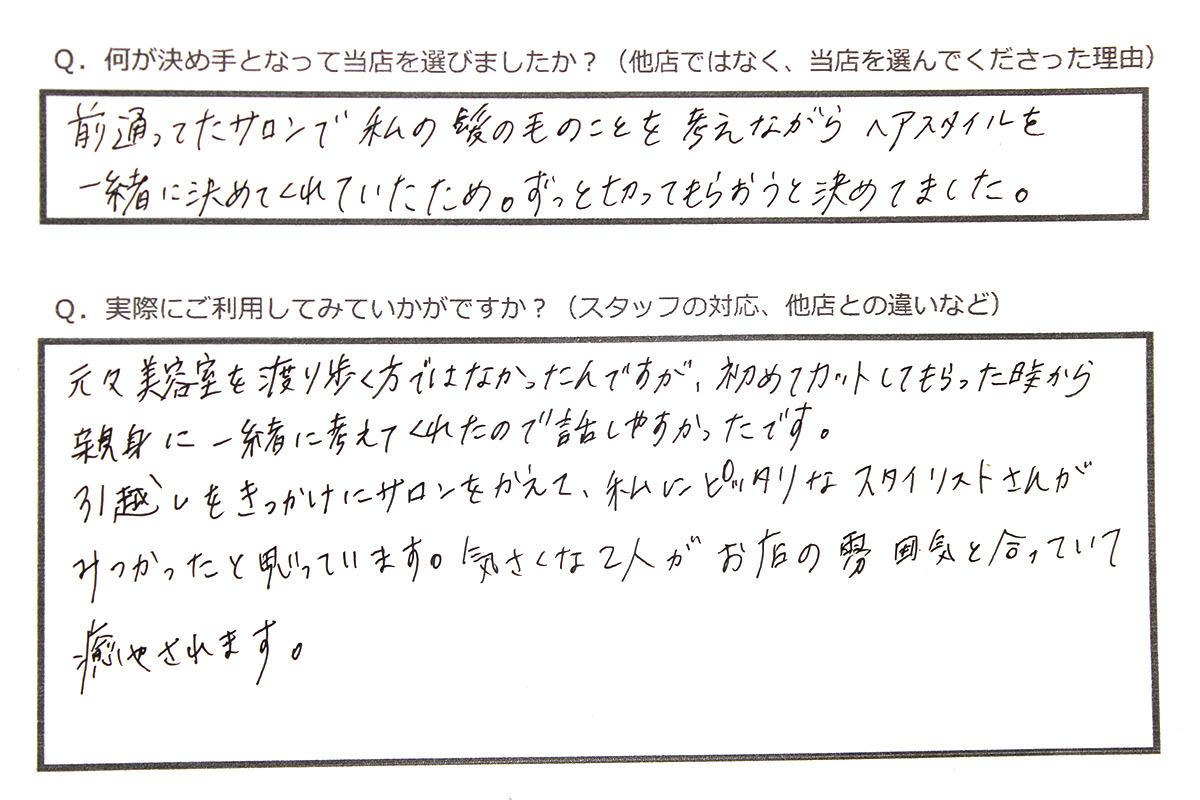 Q. 何が決め手となって当店を選びましたか？（他店ではなく、当店を選んでくださった理由）
前通ってたサロンで 私の髪の毛のことを 考えながら ヘアスタイルを
一緒に決めてくれていたため。ずっと切ってもらおうと決めてました。
Q. 実際にご利用してみていかがですか？（スタッフの対応、他店との違いなど）
元々美容室を渡り歩く方ではなかったんですが、初めてカットしてもらった時から
親身に一緒に考えてくれたので話しやすかったです。
引越しをきっかけにサロンをかえて、私にピッタリなスタイリストさんが
みつかったと思っています。気さくな2人がお店の雰囲気と合っていて
癒やされます。